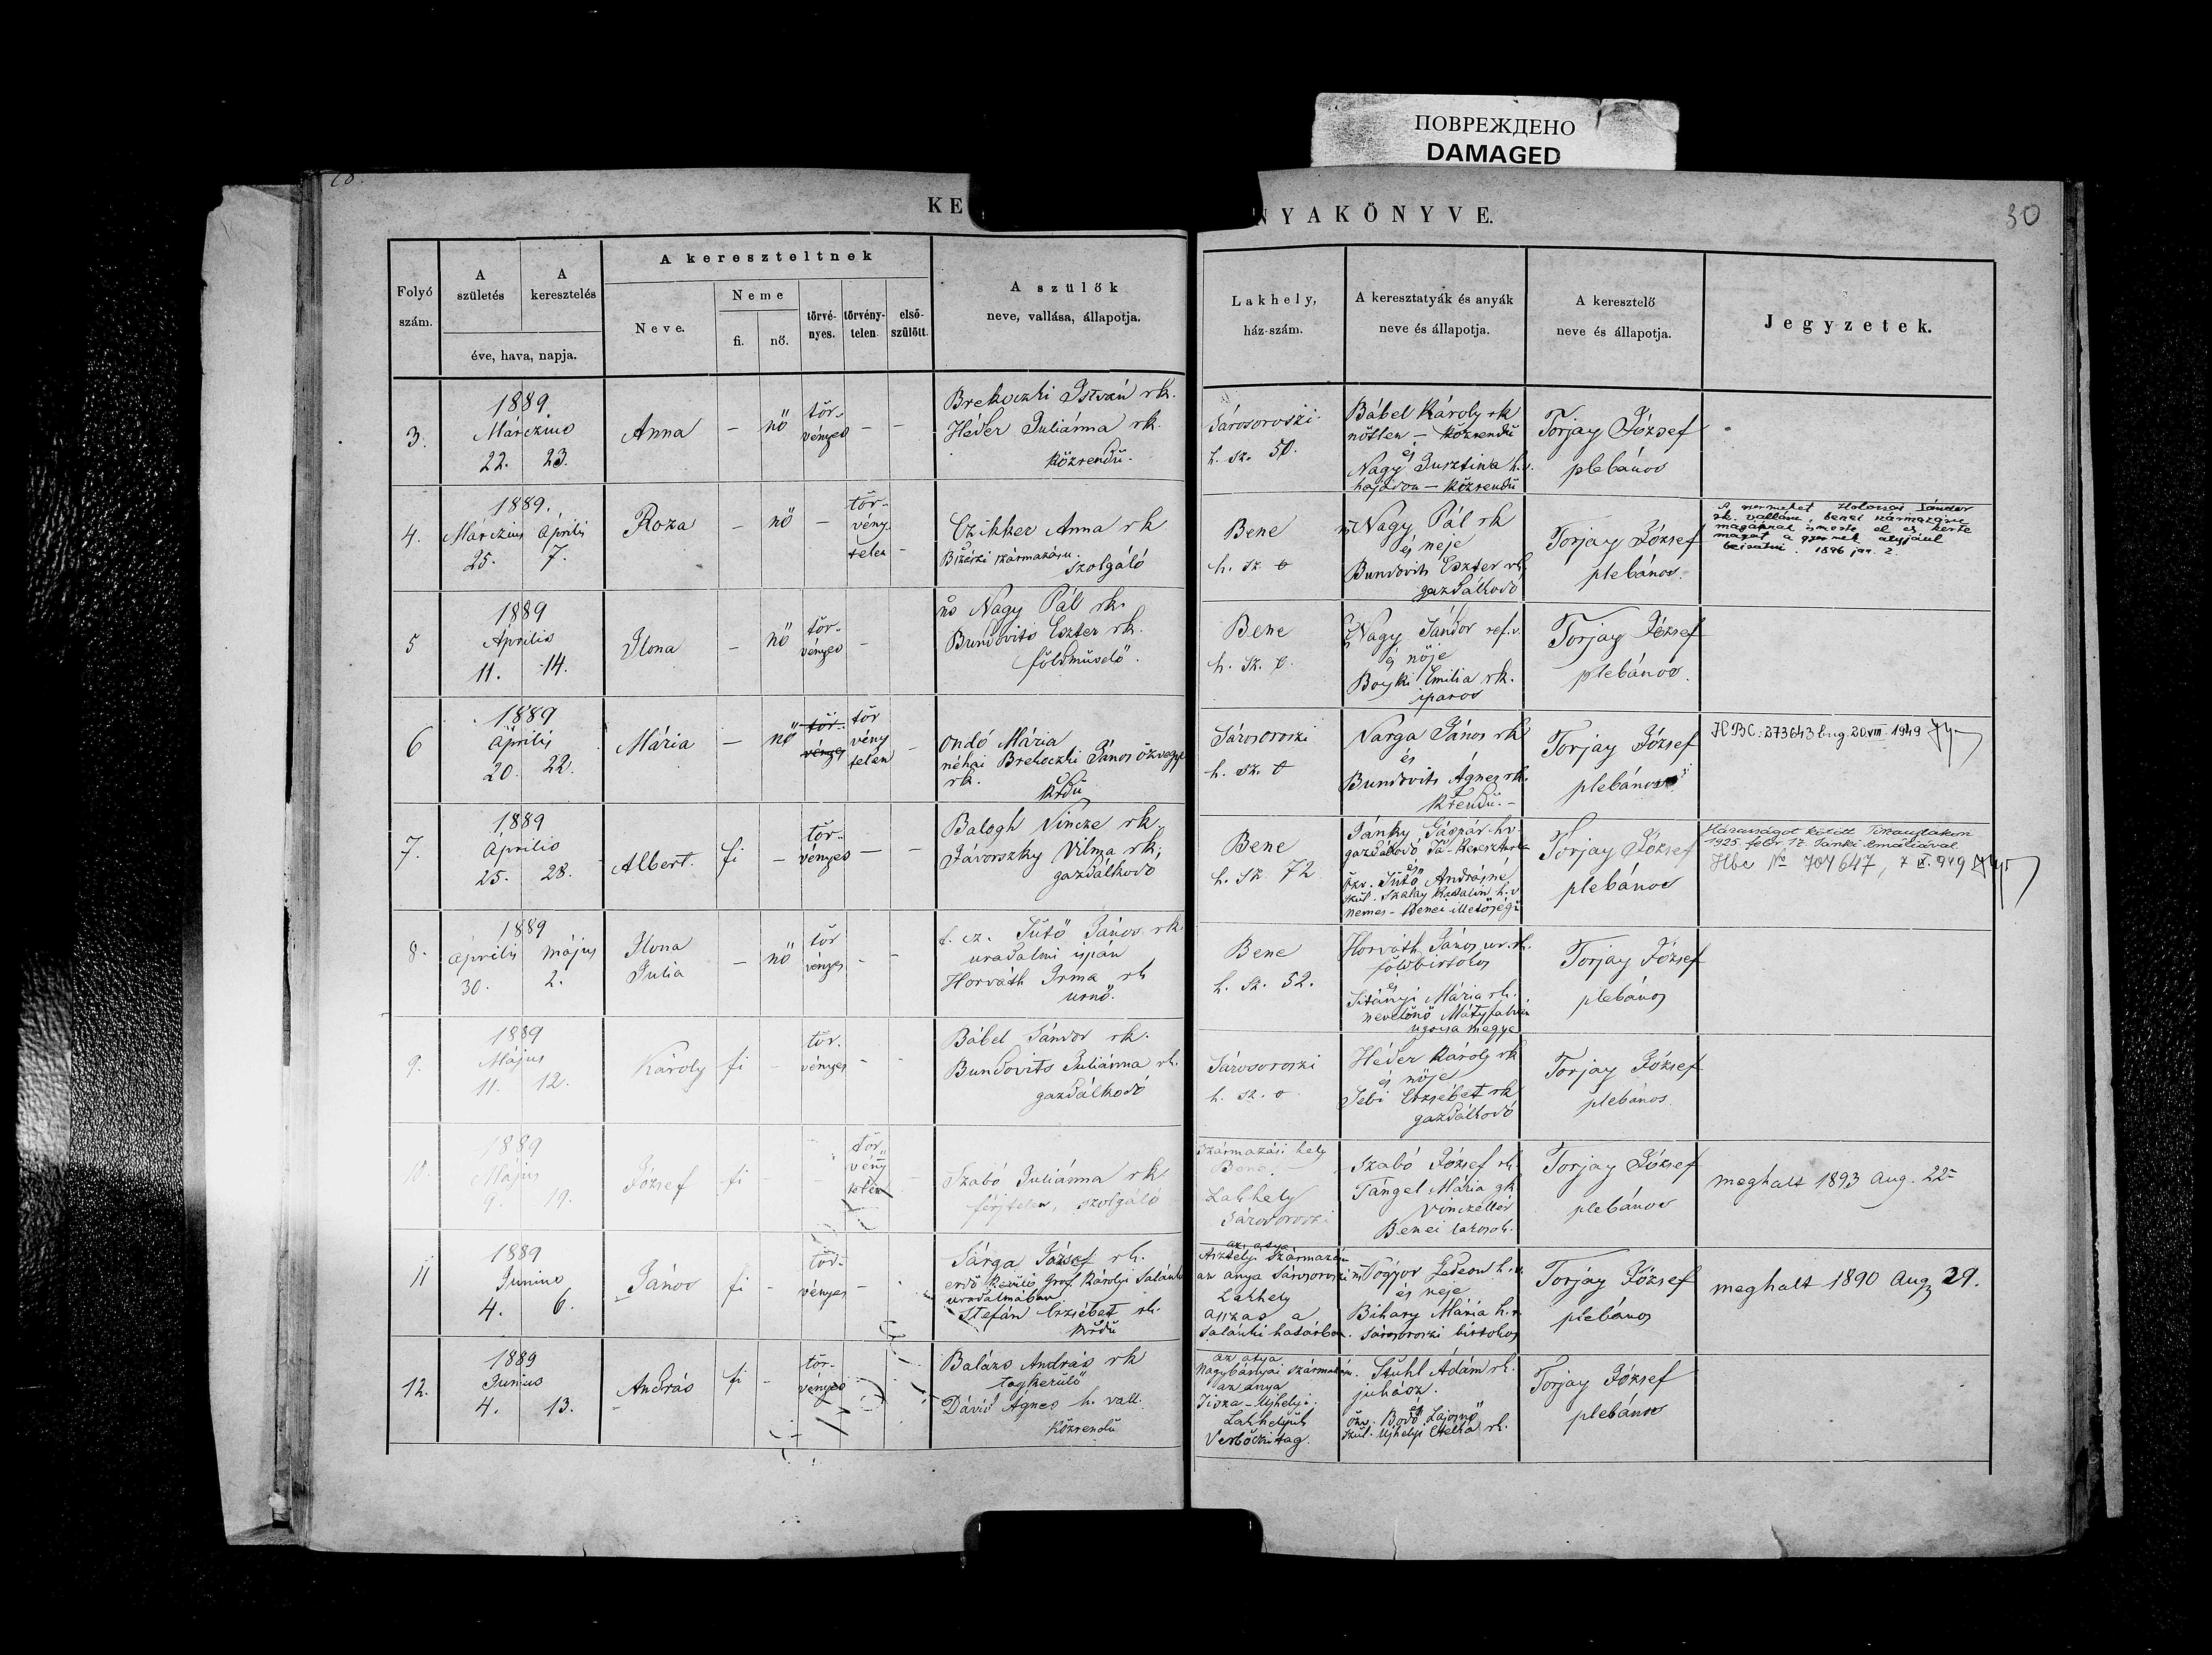 ПОВРЕЖДЕНО
DAMAGED
KE
NYAKÖNYVE.
30
Folyó
szám.
A
születés
A
keresztelés
éve, hava, napja.
A kereszteltnek
Neve.
Neme
fi.
nő.
törvé-
nyes.
törvény-
telen
első-
szülött.
A szülők
neve, vallása, állapotja.
Lakhely,
ház-szám.
A keresztatyák és anyák
neve és állapotja.
A keresztelő
neve és állapotja.
Jegyzetek.
3.
1889
Márczius
22. 23.
Anna
–
nő
tör-
vényes
–
–
Brehoczki István rk.
Héder Juliánna rk.
közrendü.
Sárosoroszi
h. sz. 50.
Bábel Károly rk
nőtlen – közrendü
és
Nagy Jusztina h.v.
hajadon – közrendü
Torjay József
plebános
4.
1889.
Márczius Április
25. 7.
Roza
–
nő
–
tör-
vény-
telen
–
Czikker Anna rk
származásu
szolgáló
Bene
h. sz. 0
Nagy Pál rk
és neje
Bundovits Eszter rk.
gazdálkodó
Torjay József
plebános.
A gyermeket Sándor
rk. vallásu, benei származásu
magáénak ismerte el és kérte
magát a gyermek atyjául
beiratni. 1896 jan. 2.
5
1889
Április
11. 14.
Ilona
–
nő
tör-
vényes
–
Nagy Pál rk.
Bundovits Eszter rk.
földmüvelő.
Bene
h. sz. 0.
Nagy Sándor ref. v.
és nője
Emilia rk.
iparos
Torjay József
plebános.
6
1889
Április
20. 22.
Mária
–
nő
tör-
vényes
tör
vény
telen
–
Ondó Mária
néhai Brehoczki János özvegye
rk.
krdü
Sárosoroszi
h. sz. 0
Varga János rk
és
Bundovits Ágnes rk.
krendü. –
Torjay József
plebános
НВС: 273643 20.VIII. 1949
7.
1889
Április
25. 28.
Albert.
fi
–
tör-
vényes
–
–
Balogh Vincze rk.
Jávorszky Vilma rk;
gazdálkodó
Bene
h. sz. 72
Jánky Gáspár hv
gazdálkodó
és
özv. Sütő Andrásné
szül. Szalay Katalin h.v
nemes - Benei illetőségü
Torjay József
plebános
Házasságot kötött
1925. febr. 17. Janki
Нbс № 704647,
8.
1889
Április Május
30. 2.
Ilona
Julia
–
nő
tör
vényes
–
–
t. cz. Sütő János rk.
uradalmi ispán
Horváth Irma rk
urnő.
Bene
h. sz. 52.
Horváth János ur. rk.
földbirtokos
és
Mária rk.
nevelőnő Mátyfalván
ugocsa megye
Torjay József
plebános
9.
1889
Május
11. 12.
Károly
fi
–
tör.
vényes
–
–
Bábel Sándor rk.
Bundovits Juliánna rk.
gazdálkodó
Sárosoroszi
h. sz. 0
Héder Károly rk
és nője
Sebi Erzsébet rk
gazdálkodó
Torjay József
plebános
10.
1889
Május
9. 19.
József
fi
–
tör-
vény
telen
Szabó Juliánna rk
férjtelen, szolgáló
Származási hely
Bene.
Lakhely
Sárosoroszi
Szabó József rk.
Tángel Mária gk
vinczellér
Benei lakosok.
Torjay József
plebános
meghalt 1893 Aug. 22
11
1889
Junius
4. 6.
János
fi
–
tör-
vényes
–
Sárga József rk.
erdő kerülő Gróf Károlyi Salánki
uradalmában
Stefán Erzsébet rk.
krdü
az atya
Asztélyi származásu
az anya Sárosoroszi
Lakhely
a
salánki határban.
Tógyor Gedeon h.v.
és neje
Bihary Mária h.v.
Sárosoroszi birtokos
Torjay József
plebános
meghalt 1890 Aug 29.
12.
1889
Junius
4. 13.
András
fi
–
tör-
vényes
Balázs András rk
tagkerülő
Dávid Ágnes h. vall.
közrendü
az atya
Nagybányai származásu.
az anya
Tisza-Ujhelyi.
Lakhelyük
Verbőczitag.
Stuhl Ádám rk.
juhász.
és
özv. Bodó Lajosné
szül. Ujhelyi Etelka rk.
Torjay József
plebános